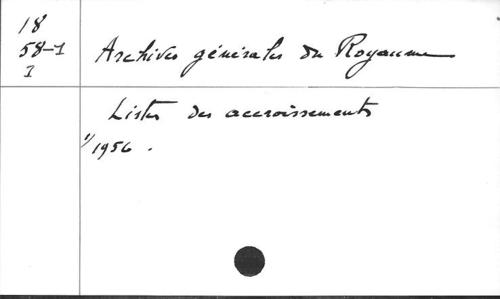 18
58-1
I
Archives générales du Royaume
Listes des accroissements
1/1956.